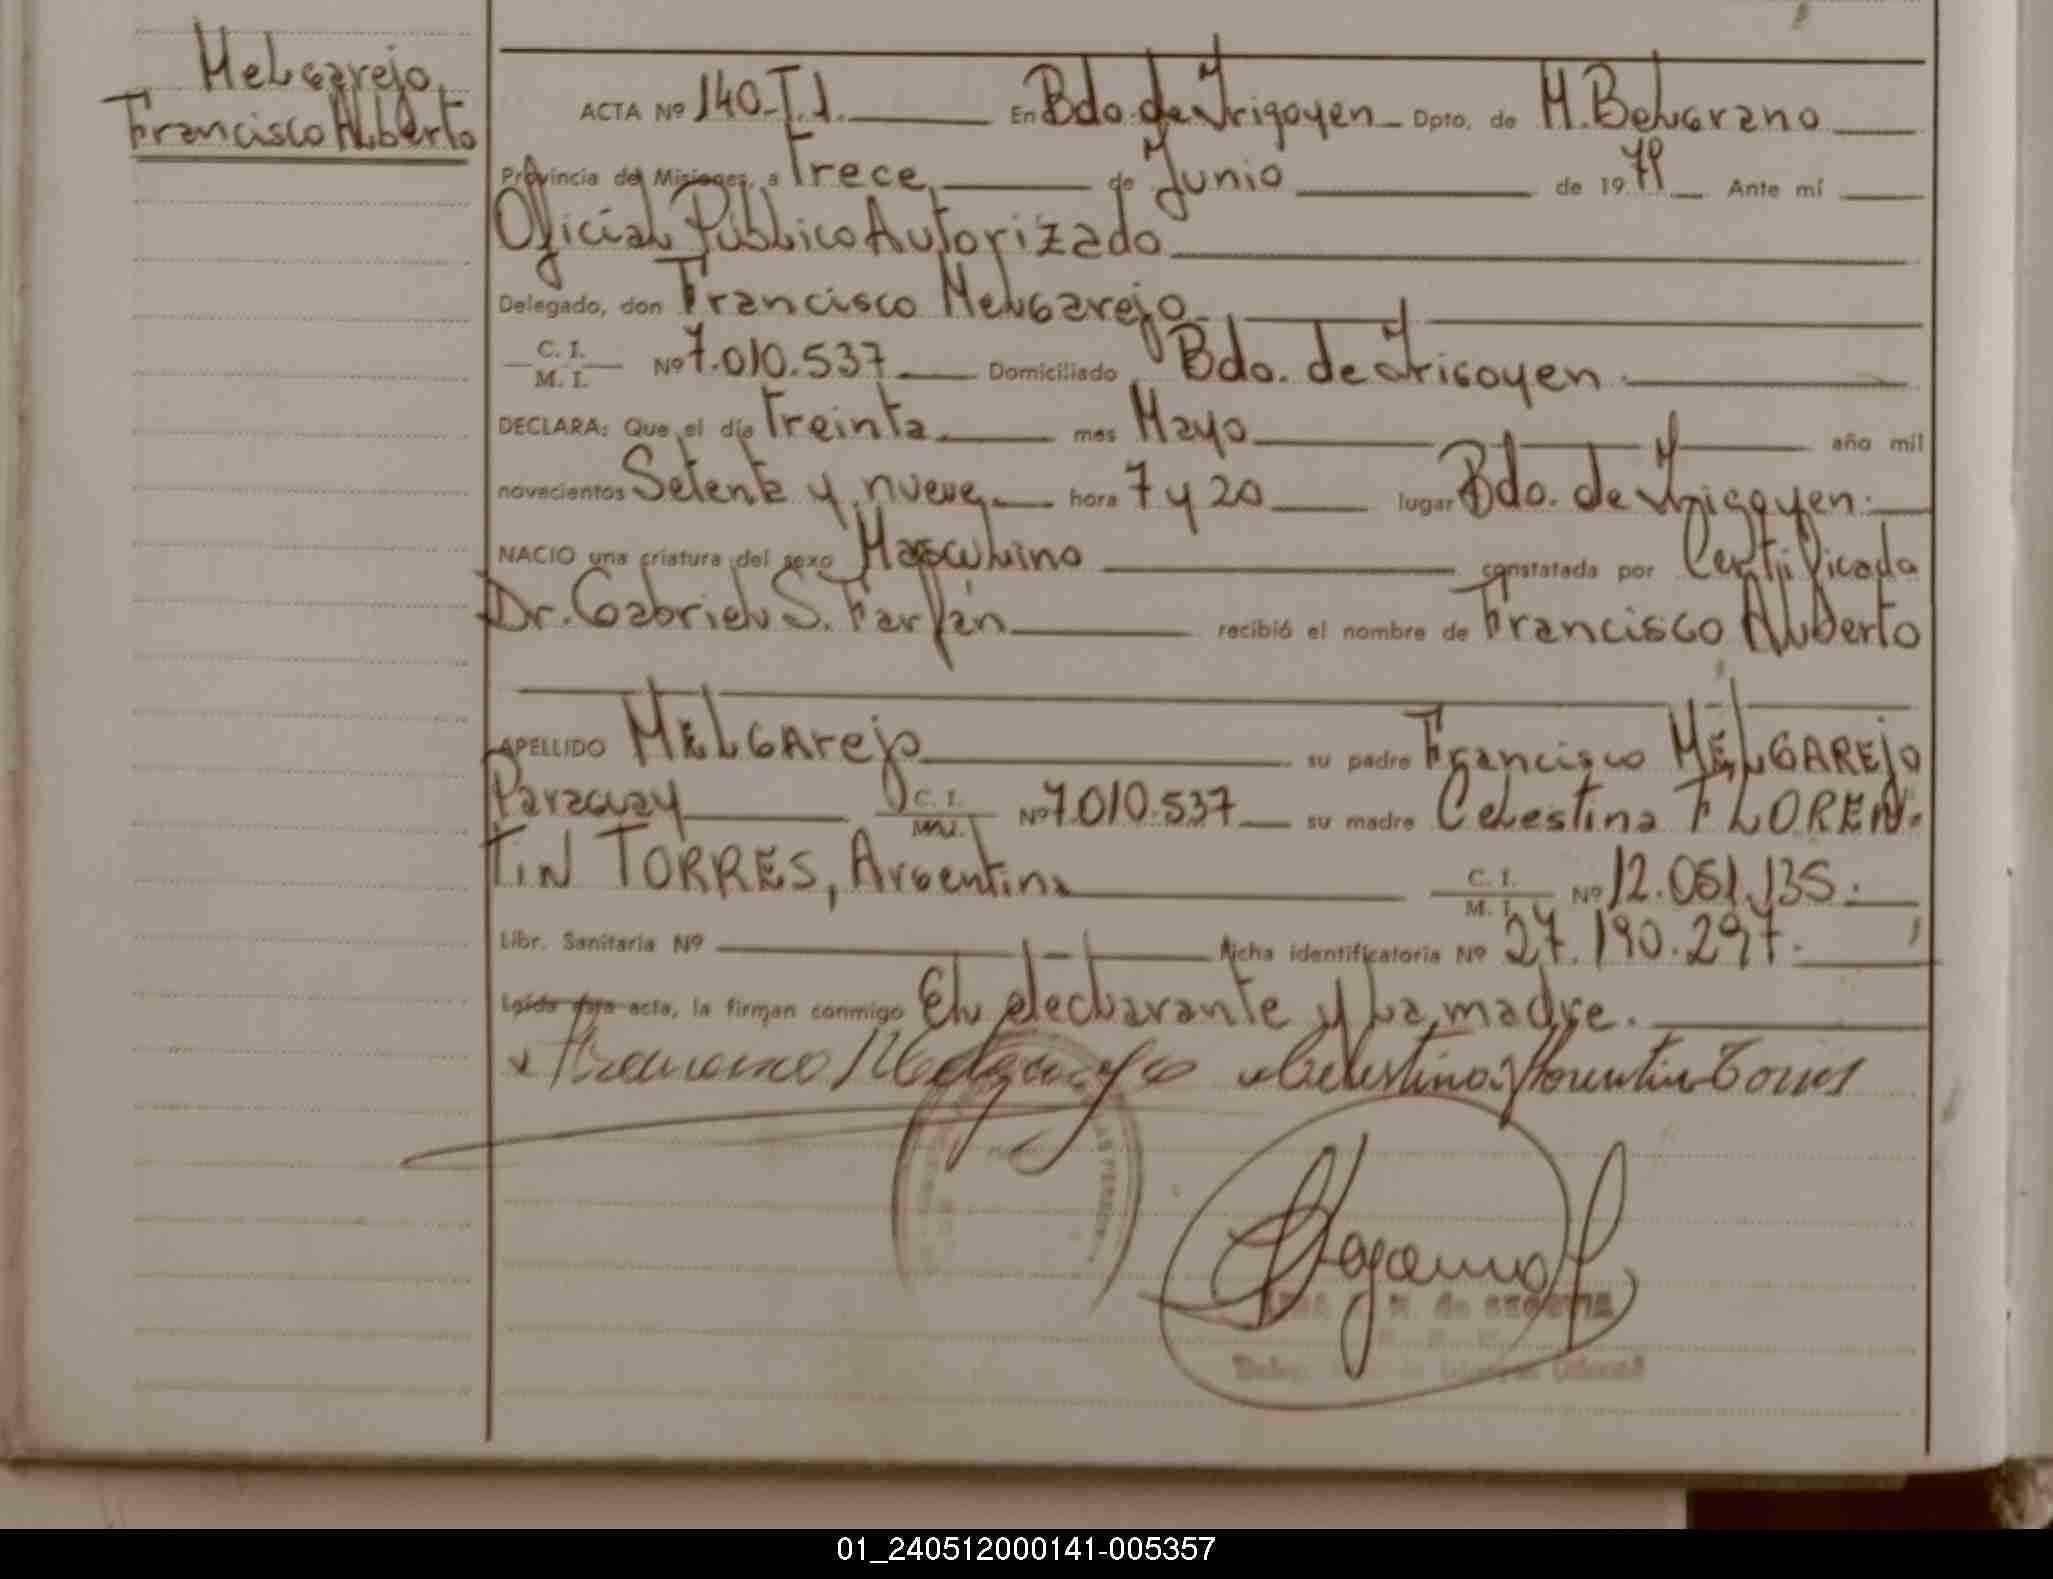 Melgarejo
Francisco Alberto
ACTA Nº 140-T.1. En Bdo. de Yrigoyen Dpto. de M. Belgrano
Provincia de Misiones, a Trece de Junio de 1979 Ante mí
Oficial Público Autorizado
Delegado, don Francisco Melgarejo
C. I.
M. I. Nº 7.010.537 Domiciliado Bdo. de Yrigoyen.
DECLARA: Que el día treinta mes Mayo año mil
novecientos Setenta y nueve hora 7 y 20 lugar Bdo. de Yrigoyen.
NACIO una criatura del sexo Masculino constatada por Certificada
Dr. Gabriel S. Farfán recibió el nombre de Francisco Alberto
APELLIDO MELGArejo su padre Francisco MELGAREJO
Paraguay C. I. Nº 7.010.537 su madre Celestina FLOREN-
TIN TORRES, Argentina C. I.
M. I. Nº 12.051.135.
Libr. Sanitaria Nº Ficha identificatoria Nº 27.190.297.
Leída esta acta, la firman conmigo El declarante y la madre.
Francisco Melgarejo Celestina Florentin Torres
01_240512000141-005357